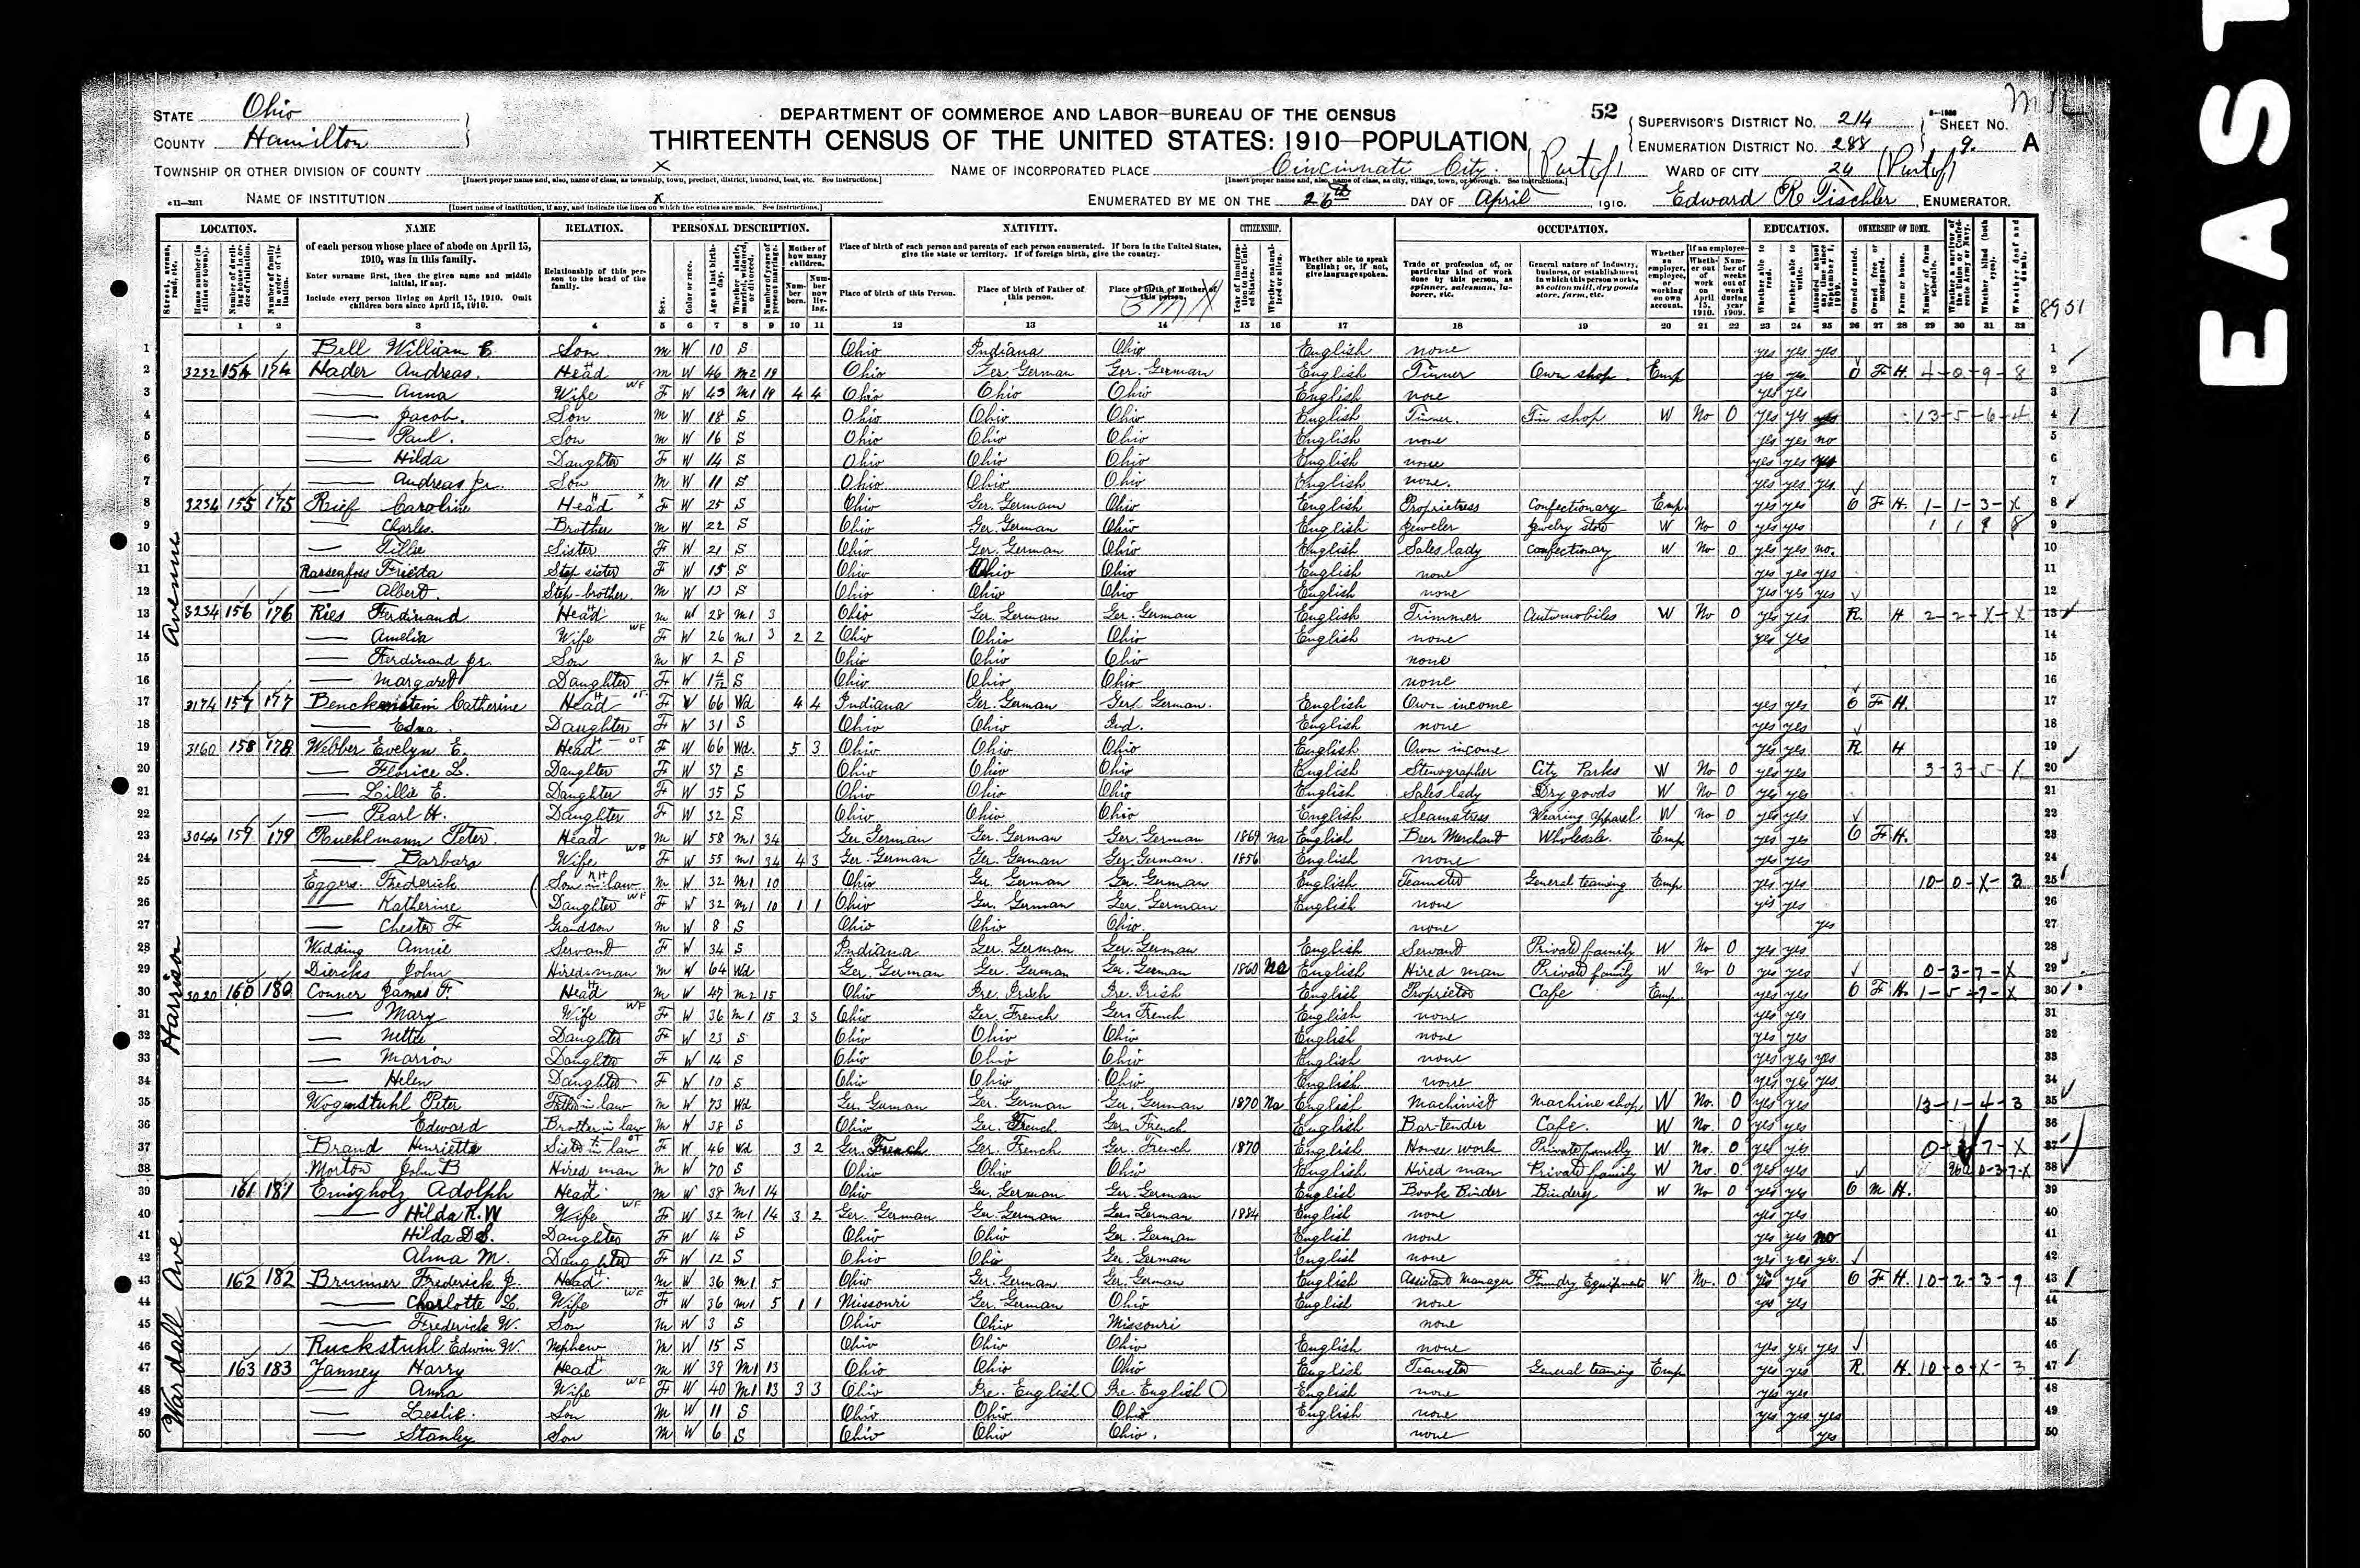 EAST
STATE Ohio
COUNTY Hamilton
DEPARTMENT OF COMMERCE AND LABOR—BUREAU OF THE CENSUS
THIRTEENTH CENSUS OF THE UNITED STATES: 1910—POPULATION
52
SUPERVISOR'S DISTRICT No. 214 SHEET No.
ENUMERATION DISTRICT No. 288 9 A
TOWNSHIP OR OTHER DIVISION OF COUNTY X
NAME OF INCORPORATED PLACE Cincinnati City (Part of)
WARD OF CITY 24 (Part of)
NAME OF INSTITUTION X
ENUMERATED BY ME ON THE 26th DAY OF April 1910. Edward R Tischler, ENUMERATOR.
LOCATION. NAME RELATION. PERSONAL DESCRIPTION. NATIVITY. CITIZENSHIP. OCCUPATION. EDUCATION. OWNERSHIP OF HOME.
of each person whose place of abode on April 15, 1910, was in this family.
Enter surname first, then the given name and middle initial, if any.
Include every person living on April 15, 1910. Omit children born since April 15, 1910.
Relationship of this person to the head of the family.
Place of birth of each person and parents of each person enumerated. If born in the United States, give the state or territory. If of foreign birth, give the country.
Place of birth of this Person. Place of birth of Father of this person. Place of birth of Mother of this person.
Whether able to speak English; or, if not, give language spoken.
8951
Harrison Avenue
1 Bell William E Son m W 10 S Ohio Indiana Ohio English none yes yes yes
2 3232 154 174 Hader Andreas. Head m W 46 M2 19 Ohio Ger. German Ger. German English Tinner Own shop Emp yes yes O F H. 4-0-9-8
3 Anna Wife F W 43 M1 19 4 4 Ohio Ohio Ohio English none yes yes
4 Jacob. Son m W 18 S Ohio Ohio Ohio English Tinner. Tin shop W No 0 yes yes 13-5-6-4
5 Paul. Son m W 16 S Ohio Ohio Ohio English none yes yes no
6 Hilda Daughter F W 14 S Ohio Ohio Ohio English none yes yes yes
7 Andreas Jr. Son m W 11 S Ohio Ohio Ohio English none. yes yes yes
8 3234 155 175 Rief Caroline Head F W 25 S Ohio Ger. German Ohio English Proprietress Confectionary Emp. yes yes O F H. 1-1-3-X
9 Charles. Brother m W 22 S Ohio Ger. German Ohio English Jeweler Jewelry store W No 0 yes yes
10 Tillie Sister F W 21 S Ohio Ger. German Ohio English Saleslady Confectionary W No 0 yes yes no.
11 Rassenfoss Frieda Step sister F W 15 S Ohio Ohio Ohio English none yes yes yes
12 Albert. Step-brother. m W 13 S Ohio Ohio Ohio English none yes yes yes
13 3234 156 176 Ries Ferdinand Head m W 28 M1 3 Ohio Ger. German Ger. German English Trimmer Automobiles W No 0 yes yes R. H 2-2-X-X
14 Amelia Wife F W 26 M1 3 2 2 Ohio Ohio Ohio English none yes yes
15 Ferdinand Jr. Son m W 2 S Ohio Ohio Ohio none
16 Margaret Daughter F W S Ohio Ohio Ohio none
17 3174 157 177 Catherine Head F W 66 Wd 4 4 Indiana Ger. German Ger. German. English Own income yes yes O F H.
18 Edna Daughter F W 31 S Ohio Ohio Ind. English none yes yes
19 3160 158 178 Webber Evelyn E. Head F W 66 Wd. 5 3 Ohio Ohio Ohio English Own income yes yes R H
20 Florice L. Daughter F W 37 S Ohio Ohio Ohio English Stenographer City Parks W No 0 yes yes 3-3-5-X
21 Lillie E. Daughter F W 35 S Ohio Ohio Ohio English Saleslady Dry goods W No 0 yes yes
22 Pearl H. Daughter F W 32 S Ohio Ohio Ohio English Seamstress Wearing apparel W No 0 yes yes
23 3044 159 179 Ruehlmann Peter. Head m W 58 M1 34 Ger. German Ger. German Ger. German 1869 Na English Beer Merchant Wholesale. Emp yes yes O F H.
24 Barbara Wife F W 55 M1 34 4 3 Ger. German Ger. German Ger. German. 1856 English none yes yes
25 Eggers. Frederick Son in law m W 32 M1 10 Ohio Ger. German Ger. German English Teamster General teaming Emp yes yes 10-0-X-3
26 Katherine Daughter F W 32 M1 10 1 1 Ohio Ger. German Ger. German English none yes yes
27 Chester F Grandson m W 8 S Ohio Ohio Ohio. none yes
28 Wedding Annie Servant F W 34 S Indiana Ger. German Ger. German English Servant Private family W No 0 yes yes
29 Diercks John Hired man m W 64 Wd Ger. German Ger. German Ger. German 1860 Na English Hired man Private family W No 0 yes yes 0-3-7-X
30 3020 160 180 Conner James F. Head m W 47 M2 15 Ohio Ire. Irish Ire. Irish English Proprietor Cafe Emp. yes yes O F H. 1-5-7-X
31 Mary Wife F W 36 M1 15 3 3 Ohio Ger. French Ger. French English none yes yes
32 Nettie Daughter F W 23 S Ohio Ohio Ohio English none yes yes
33 Marion Daughter F W 14 S Ohio Ohio Ohio English none yes yes yes
34 Helen Daughter F W 10 S Ohio Ohio Ohio English none yes yes yes
35 Wogenstuhl Peter Father in law m W 73 Wd Ger. German Ger. German Ger. German 1870 Na English Machinist Machine shop W No. 0 yes yes 13-1-4-3
36 Edward Brother in law m W 38 S Ohio Ger. French Ger. French English Bar-tender Cafe. W No. 0 yes yes
37 Brand Henriette Sister in law F W 46 Wd 3 2 Ger. French Ger. French Ger. French 1870 English House work Private family W No. 0 yes yes
38 Morton John B Hired man m W 70 S Ohio Ohio Ohio English Hired man Private family W No. 0 yes yes 0-3-7-X
Wardall Ave.
39 161 181 Emigholz Adolph Head m W 38 M1 14 Ohio Ger. German Ger. German English Book Binder Bindery W No 0 yes yes O M H.
40 Hilda R. W Wife F W 32 M1 14 3 2 Ger. German Ger. German Ger. German 1884 English none yes yes
41 Hilda D S. Daughter F W 14 S Ohio Ohio Ger. German English none yes yes no
42 Alma M. Daughter F W 12 S Ohio Ohio Ger. German English none yes yes yes.
43 162 182 Brunner Frederick J. Head m W 36 M1 5 Ohio Ger. German. Ger. German English Assistant Manager Foundry Equipments W No. 0 yes yes O F H. 10-2-3-9
44 Charlotte L. Wife F W 36 M1 5 1 1 Missouri Ger. German Ohio English none yes yes
45 Frederick W. Son m W 3 S Ohio Ohio Missouri none
46 Ruckstuhl Edwin W. Nephew m W 15 S Ohio Ohio Ohio English none yes yes yes
47 163 183 Janney Harry Head m W 39 M1 13 Ohio Ohio Ohio English Teamster General teaming Emp yes yes R. H. 10-0-X-3
48 Anna Wife F W 40 M1 13 3 3 Ohio Ire. English Ire. English English none yes yes
49 Leslie. Son m W 11 S Ohio Ohio Ohio English none yes yes yes
50 Stanley Son m W 6 S Ohio Ohio Ohio. none yes